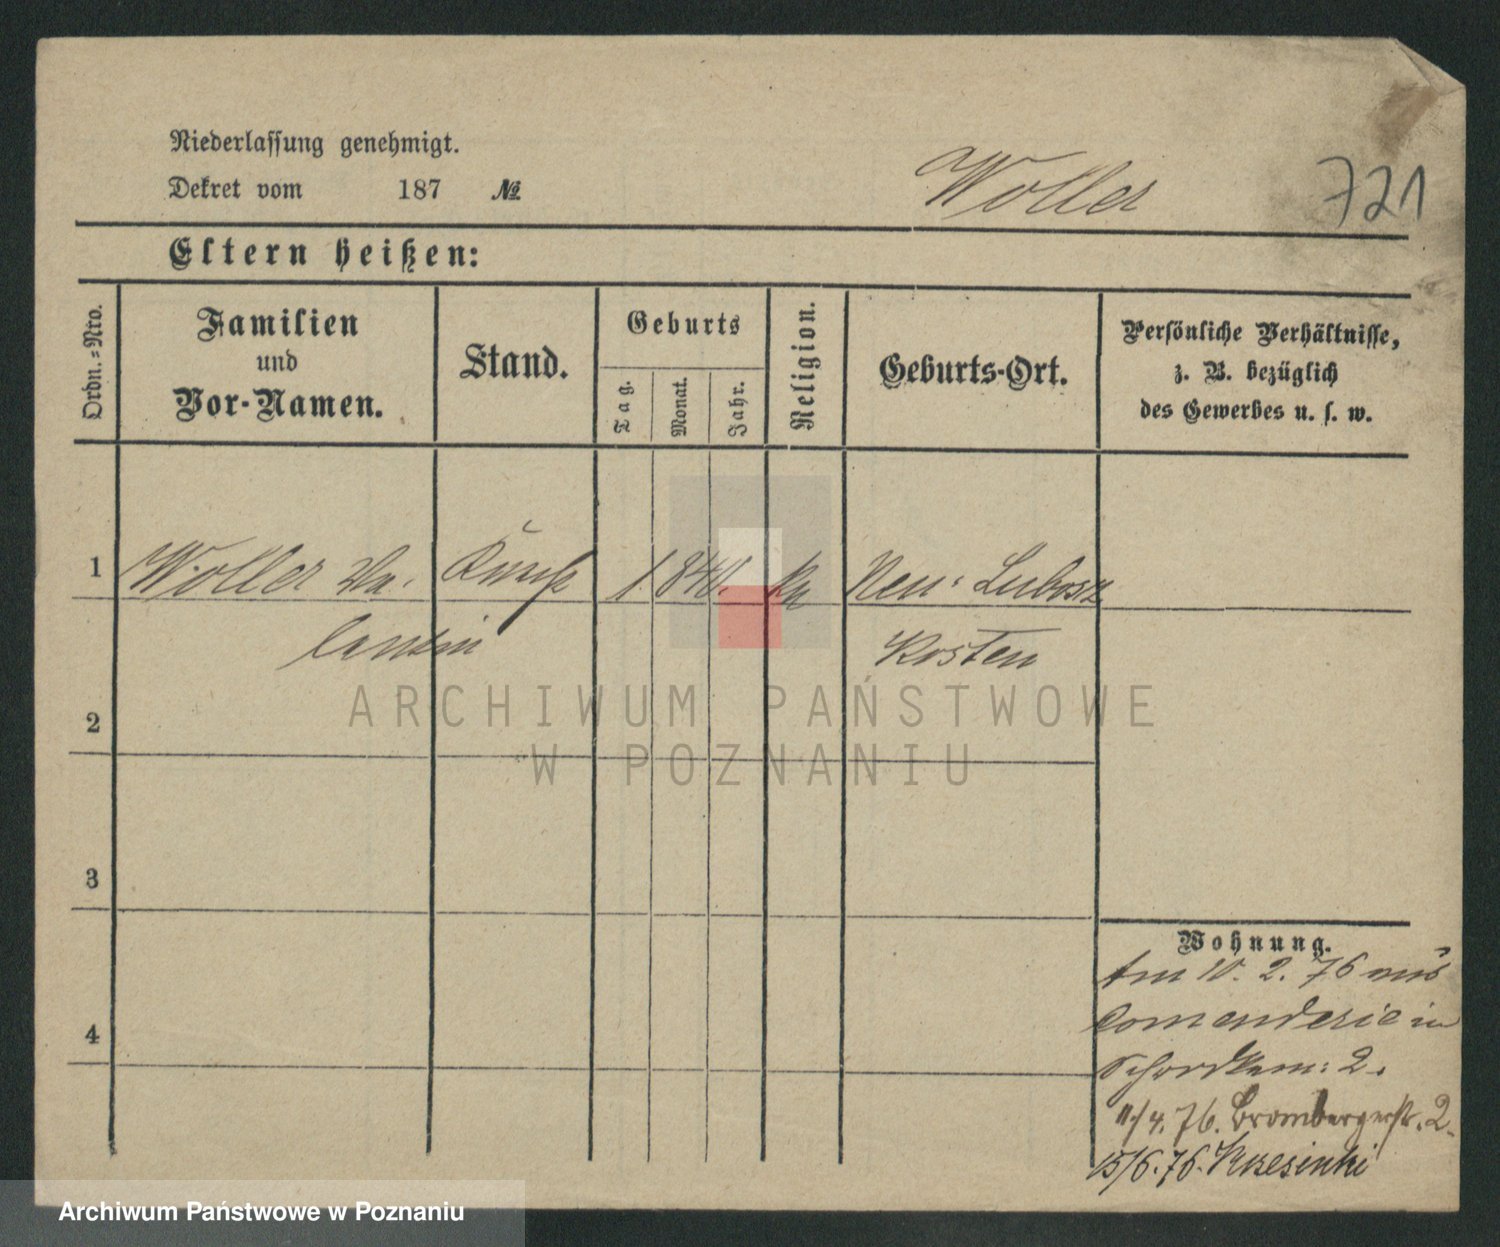 Niederlassung genehmigt.
Dekret vom 187 №
Woller 721
Eltern heißen:
Ordn.=Nro.
Familien
und
Vor-Namen.
Stand.
Geburts
Tag.
Monat.
Jahr.
Religion.
Geburts-Ort.
Persönliche Verhältnisse,
z. B. bezüglich
des Gewerbes u. s. w.
1 Woller Va- 1840. Neu: Lubosz
lentin Kosten
2
3
4
Wohnung.
Am 10. 2. 76 aus
Comenderie in
2.
11/4. 76. Brombergerstr. 2.
15/6. 76. Krzesinki
ARCHIWUM PAŃSTWOWE
W POZNANIU
Archiwum Państwowe w Poznaniu